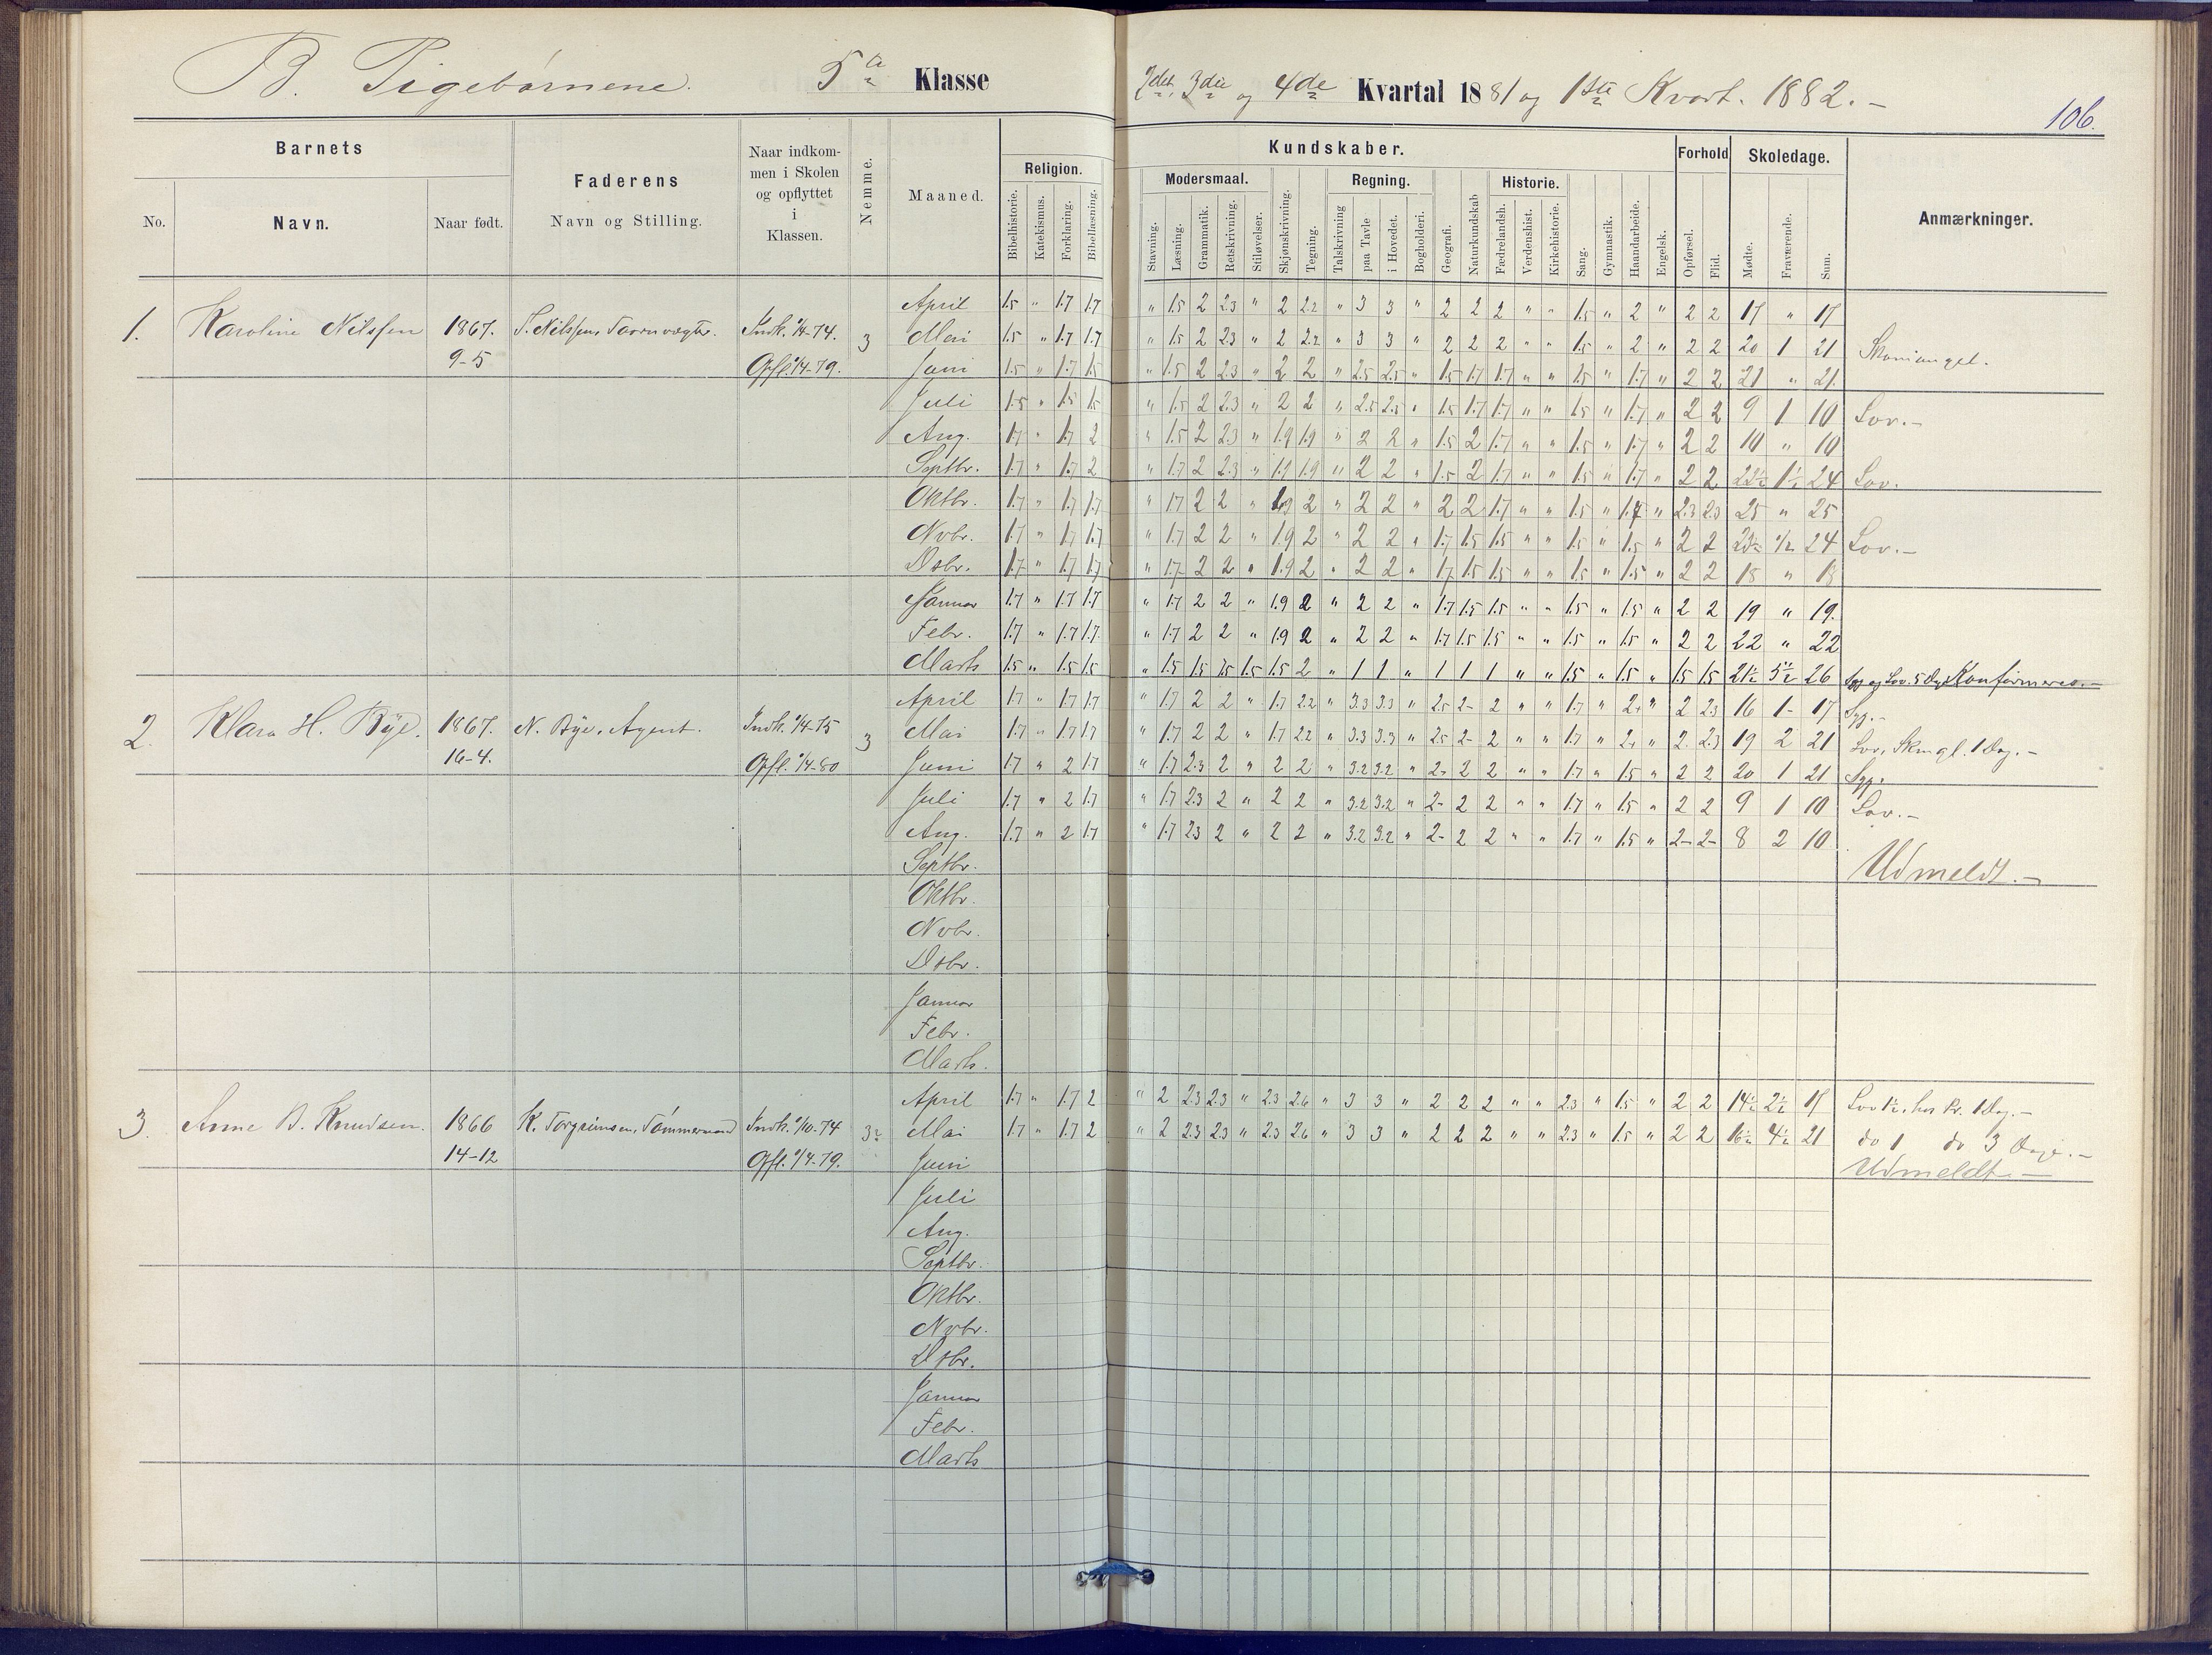 B. Pigebørnene. 5a Klasse 2det, 3die og 4de Kvartal 1881 og 1ste Kvart. 1882. –
106.
Barnets Faderens Naar indkommen i Skolen og opflyttet i Klassen. Nemme. Maaned. Religion. Kundskaber. Forhold Skoledage. Anmærkninger.
Modersmaal. Regning. Historie.
No. Navn. Naar født. Navn og Stilling.
Bibelhistorie. Katekismus. Forklaring. Bibellæsning. Stavning. Læsning. Grammatik. Retskrivning. Stiløvelser. Skjønskrivning. Tegning. Talskrivning paa Tavle i Hovedet. Bogholderi. Geografi. Naturkundskab Fædrelandsh. Verdenshist. Kirkehistorie. Sang. Gymnastik. Haandarbeide. Engelsk. Opførsel. Flid. Mødte. Fraværende. Sum.
April 1.5 " 1.7 1.7 " 1.5 2 2.3 " 2 2.2 " 3 3 " 2 2 2 " " 1.5 " 2 " 2 2 17 " 17
1. Karoline Nilssen 1867. S. Nilssen, Taarnvægter. Indk. 1/4-74. 3 Mai 1.5 " 1.7 1.7 " 1.5 2 2.3 " 2 2.2 " 3 3 " 2 2 2 " " 1.5 " 2 " 2 2 20 1 21 Skomangel.
9-5 Opfl. 1/4-79. Juni 1.5 " 1.7 1.5 " 1.5 2 2.3 " 2 2 " 2.5 2.5 " 1.5 1.7 1.7 " " 1.5 " 1.7 " 2 2 21 " 21
Juli 1.5 " 1.5 1.5 " 1.5 2 2.3 " 2 2 " 2.5 2.5 " 1.5 1.7 1.7 " " 1.5 " 1.7 " 2 2 9 1 10 Lov. –
Aug. 1.7 " 1.7 2 " 1.5 2 2.3 " 1.9 1.9 " 2 2 " 1.5 2 1.7 " " 1.5 " 1.7 " 2 2 10 " 10
Septbr. 1.7 " 1.7 2 " 1.7 2 2.3 " 1.9 1.9 " 2 2 " 1.5 2 1.7 " " 1.5 " 1.7 " 2 2 22½ 1½ 24 Lov.
Oktbr. 1.7 " 1.7 1.7 " 1.7 2 2 " 1.9 2 " 2 2 " 2 2 1.7 " " 1.5 " 1.7 " 2.3 2.3 25 " 25
Novbr. 1.7 " 1.7 1.7 " 1.7 2 2 " 1.9 2 " 2 2 " 1.7 1.5 1.5 " " 1.5 " 1.5 " 2 2 23½ ½ 24 Lov. –
Desbr. 1.7 " 1.7 1.7 " 1.7 2 2 " 1.9 2 " 2 2 " 1.7 1.5 1.5 " " 1.5 " 1.5 " 2 2 18 " 18
Januar 1.7 " 1.7 1.7 " 1.7 2 2 " 1.9 2 " 2 2 " 1.7 1.5 1.5 " " 1.5 " 1.5 " 2 2 19 " 19.
Febr. 1.7 " 1.7 1.7 " 1.7 2 2 " 1.9 2 " 2 2 " 1.7 1.5 1.5 " " 1.5 " 1.5 " 2 2 22 " 22
Marts 1.5 " 1.5 1.5 " 1.5 1.5 1.5 1.5 1.5 2 " 1 1 " 1 1 1 " " 1.5 " 1.5 " 1.5 1.5 5½ 26 Syg og Lov. 5 Dg. Konfirmeres. –
April 1.7 " 1.7 1.7 " 1.7 2 2 " 1.7 2.2 " 3.3 3.3 " 2.5 2- 2 " " 1.7 " 2 " 2 2.3 16 1- 17 Syg. –
2. Klara H. Bye. 1867. N. Bye. Agent. Indk. 1/4-75 3 Mai 1.7 " 1.7 1.7 " 1.7 2 2 " 1.7 2.2 " 3.3 3.3 " 2.5 2- 2 " " 1.7 " 2 " 2 2.3 19 2 21 Lov, Skmgl. 1 Dag. –
16-4. Opfl. 1/4-80 Juni 1.7 " 2 1.7 " 1.7 2.3 2 " 2 2 " 3.2 3.2 " 2- 2 2 " " 1.7 " 1.5 " 2 2 20 1 21 Syg.
Juli 1.7 " 2 1.7 " 1.7 2.3 2 " 2 2 " 3.2 3.2 " 2- 2 2 " " 1.7 " 1.5 " 2 2 9 1 10 Lov. –
Aug. 1.7 " 2 1.7 " 1.7 2.3 2 " 2 2 " 3.2 3.2 " 2- 2 2 " " 1.7 " 1.5 " 2- 2- 8 2 10
Septbr. Udmeldt. –
Oktbr.
Novbr.
Desbr.
Januar
Febr.
Marts.
April 1.7 " 1.7 2 " 2 2.3 2.3 " 2.3 2.6 " 3 3 " 2 2 2 " " 2.3 " 1.5 " 2 2 14½ 2½ 17 Lov 1½, hos Pr. 1 Dag. –
3. Anne B. Knudsen. 1866 K. Torgrimsen, Tømmermand Indk. 1/10-74 Mai 1.7 " 1.7 2 " 2 2.3 2.3 " 2.3 2.6 " 3 3 " 2 2 2 " " 2.3 " 1.5 " 2 2 16½ 4½ 21 do 1 do 3 Dage. –
14-12 Opfl. 1/4-79. Juni Udmeldt. –
Juli
Aug.
Septbr.
Oktbr.
Novbr.
Desbr.
Januar
Febr.
Marts